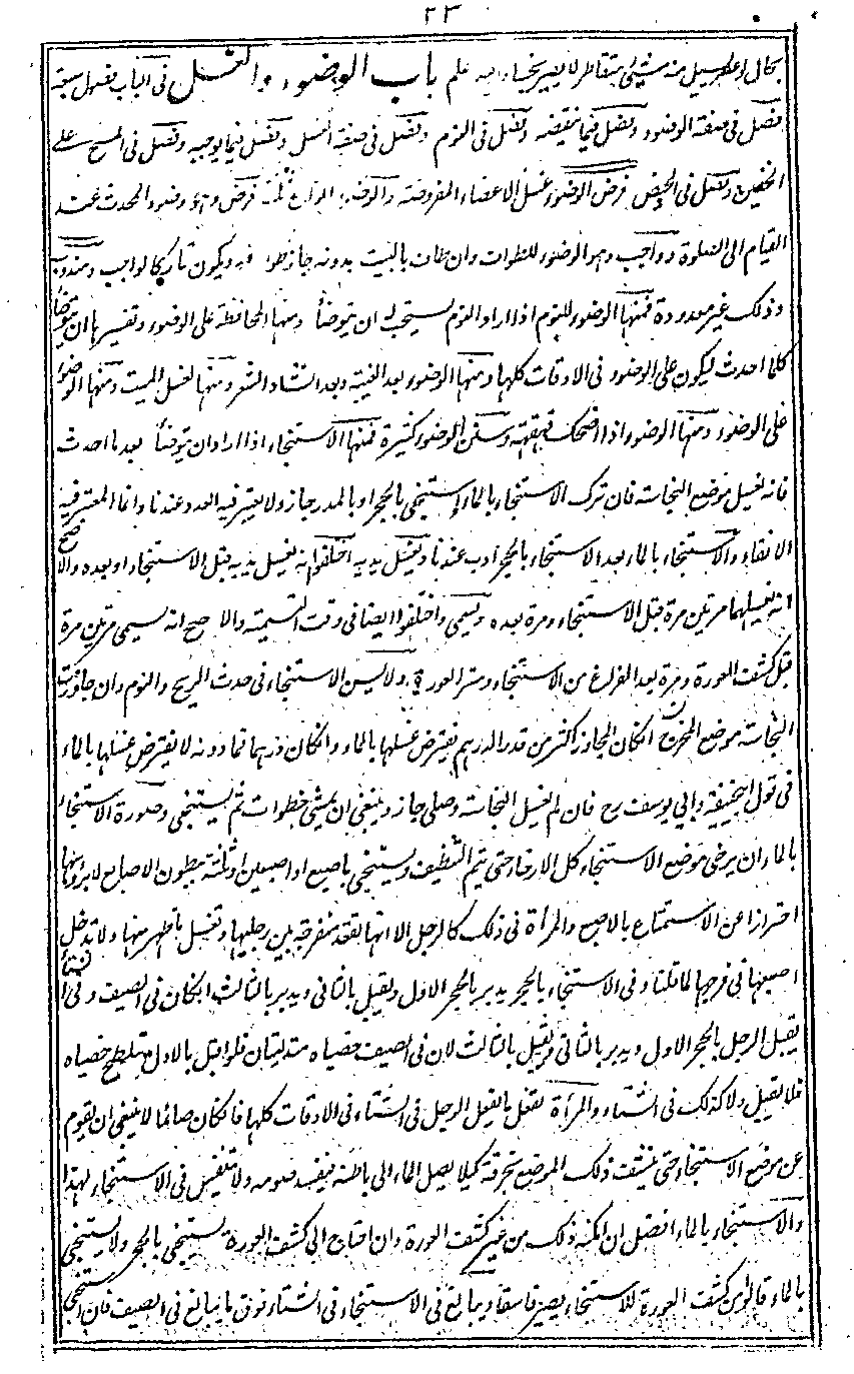 ٢٣
بحال لو علم يسيل منه شيئ متقاطر لا يعتبر نجسا والله علم باب الوضوء والغسل فى الباب فصول سبعة
فصل فى صفة الوضوء وفصل فيما ينقضه وفصل فى النوم وفصل فى صفة الغسل وفصل فيما يوجبه وفصل فى المسح على
الخفين وفصل فى الحيض فرض الوضوء غسل الاعضاء المفروضة والوضوء انواع ثلثة فرض وهو وضوء المحدث عند
القيام الى الصلوة وواجب وهو الوضوء للطواف وان طاف بالبيت بدونه جاز طوافه ويكون تاركا لواجب ومندوب
وذلك غير معدودة فمنها الوضوء للنوم اذا اراد النوم يستحب له ان يتوضأ ومنها المحافظة على الوضوء وتفسيرها ان يتوضأ
كلما احدث ليكون على الوضوء فى الاوقات كلها ومنها الوضوء بعد الغيبة وبعد انشاد الشعر ومنها لغسل الميت ومنها الوضوء
على الوضوء ومنها الوضوء اذا ضحك قهقهة وسنن الوضوء كثيرة فمنها الاستنجاء اذا اراد ان يتوضأ بعد ما احدث
فانه يغسل موضع النجاسة فان ترك الاستنجاء بالماء واستنجى بالحجر او بالمدر جاز ولا يعتبر فيه العدد عندنا وانما المعتبر فيه
الانقاء والاستنجاء بالماء بعد الاستنجاء بالحجر ادب عندنا ويغسل يديه اختلفوا انه يغسل يديه قبل الاستنجاء او بعده والاصح
انه يغسلهما مرتين مرة قبل الاستنجاء ومرة بعده ويسمى واختلفوا ايضا فى وقت التسمية والاصح انه يسمى مرتين مرة
قبل كشف العورة ومرة بعد الفراغ من الاستنجاء وستر العورة ولا يسن الاستنجاء فى حدث الريح والنوم وان جاوزت
النجاسة موضع المخرج ان كان المجاوز اكثر من قدر الدرهم يفترض غسلها بالماء وان كان درهما فما دونه لا يفترض غسلها بالماء
فى قول ابى حنيفة وابى يوسف رح فان لم يغسل النجاسة وصلى جاز وينبغى ان يمشى خطوات ثم يستنجى وصورة الاستنجاء
بالماء ان يرخى موضع الاستنجاء كل الارخاء حتى يتم التنظيف ويستنجى باصبع او اصبعين او ثلثة ببطون الاصابع لا برؤسها
احترازا عن الاستمتاع بالاصبع والمرأة فى ذلك كالرجل الا انها تقعد متفرجة بين رجليها وتغسل ما ظهر منها ولا تدخل
اصبعها فى فرجها لما قلنا وفى الاستنجاء بالحجر يدبر بالحجر الاول ويقبل بالثانى ويدبر بالثالث ان كان فى الصيف وفى الشتاء
يقبل الرجل بالحجر الاول ويدبر بالثانى ويقبل بالثالث لان فى الصيف خصياه متدليتان فلو اقبل بالاول يتلطخ خصياه
فلا يقبل ولا كذلك فى الشتاء والمرأة تفعل ما يفعل الرجل فى الشتاء فى الاوقات كلها فان كان صائما لا ينبغى ان يقوم
عن موضع الاستنجاء حتى ينشف ذلك الموضع بخرقة كيلا يصل الماء الى باطنه فيفسد صومه ولا يتنفس فى الاستنجاء لهذا
والاستنجاء بالماء افضل ان امكنه ذلك من غير كشف العورة وان احتاج الى كشف العورة يستنجى بالحجر ولا يستنجى
بالماء قالوا من كشف العورة للاستنجاء يصير فاسقا ويبالغ فى الاستنجاء فى الشتاء فوق ما يبالغ فى الصيف فان استنجى